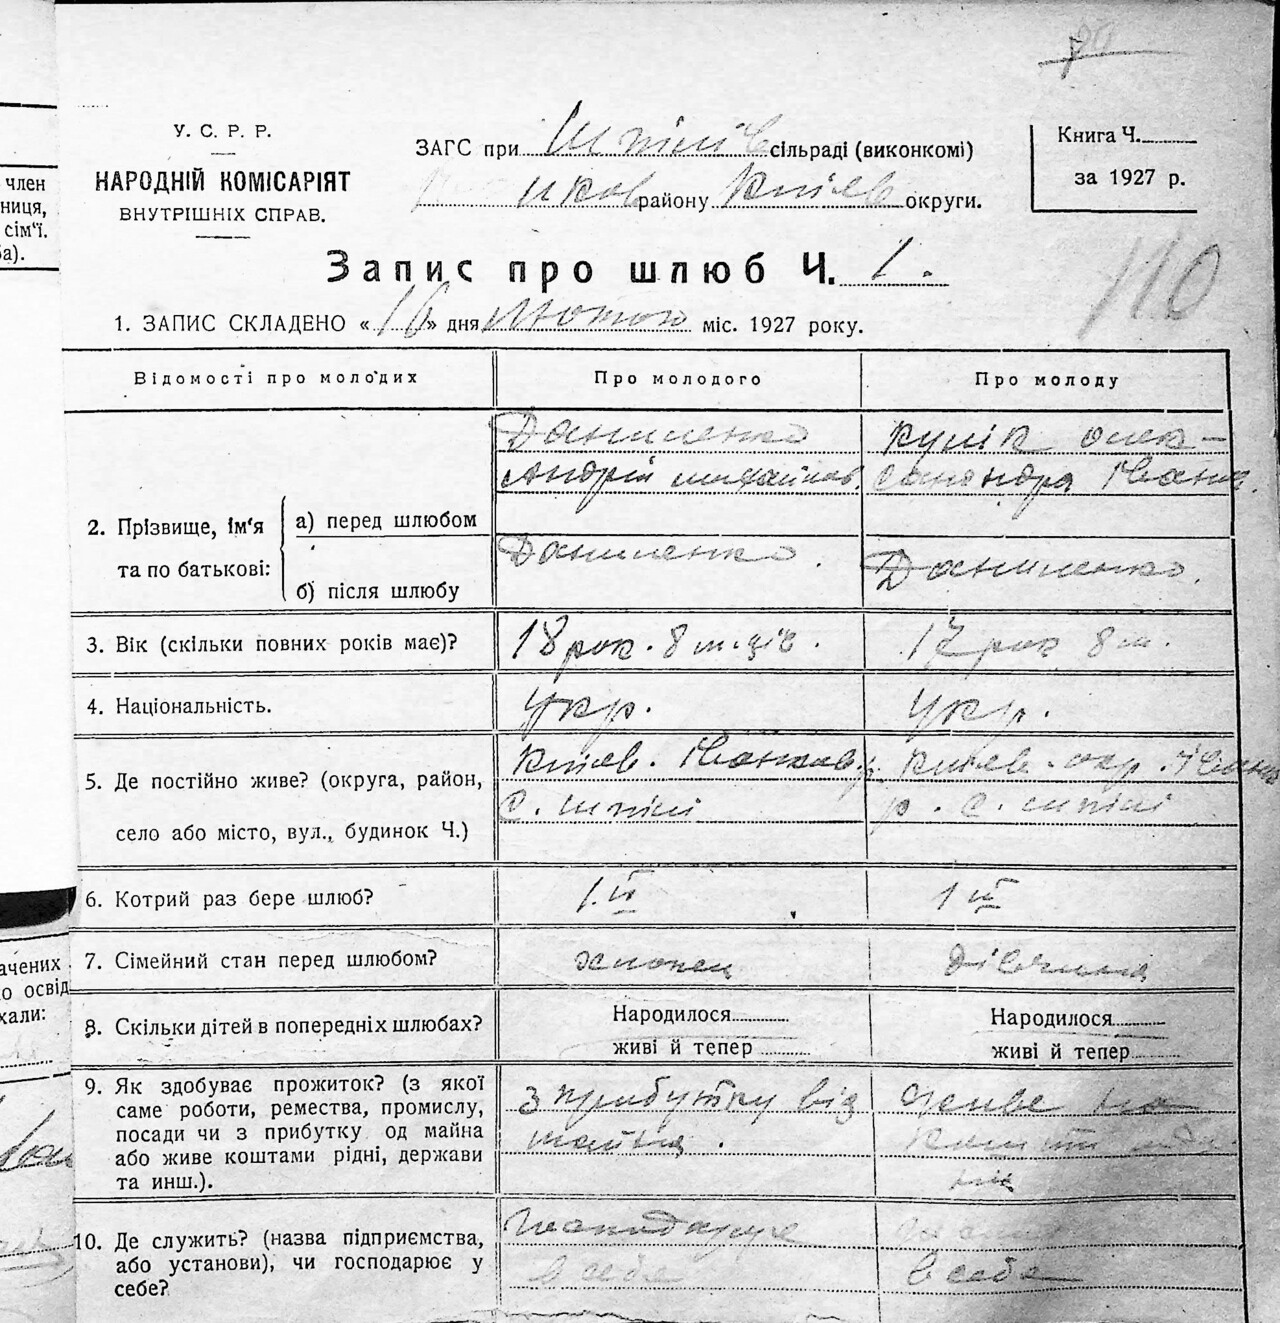 У. С. Р. Р.
НАРОДНІЙ КОМІСАРІЯТ
ВНУТРІШНІХ СПРАВ.
ЗАГС при Шпілів сільраді (виконкомі)
району Київ округи.
Книга Ч.
за 1927 р.
110
Запис про шлюб Ч. 1.
1. ЗАПИС СКЛАДЕНО «16» дня лютого міс. 1927 року.
член
ниця,
сім'ї.
Відомості про молодих
Про молодого
Про молоду
2. Прізвище, ім'я та по батькові:
а) перед шлюбом
Даниленко
Андрій михайлов.
Кулік Олек-
сандра Іван.
б) після шлюбу
Даниленко.
Даниленко.
3. Вік (скільки повних років має)?
18 рок. 8 м-ців.
17 рок 8 м.
4. Національність.
Укр.
Укр.
5. Де постійно живе? (округа, район,
село або місто, вул., будинок Ч.)
Київ. Іванков. р.
с. шпілі
Київ. окр. Іванк
р. с. шпілі
6. Котрий раз бере шлюб?
1.й
1 й
7. Сімейний стан перед шлюбом?
хлопец
дівчина
8. Скільки дітей в попередніх шлюбах?
Народилося
живі й тепер
Народилося
живі й тепер
9. Як здобуває прожиток? (з якої
саме роботи, ремества, промислу,
посади чи з прибутку од майна
або живе коштами рідні, держави
та инш.).
з прибутку від
майна.
живе на
кошти
10. Де служить? (назва підприємства,
або установи), чи господарює у
себе?
Господарює
в себе
в себе
ачених
о освід
хали: